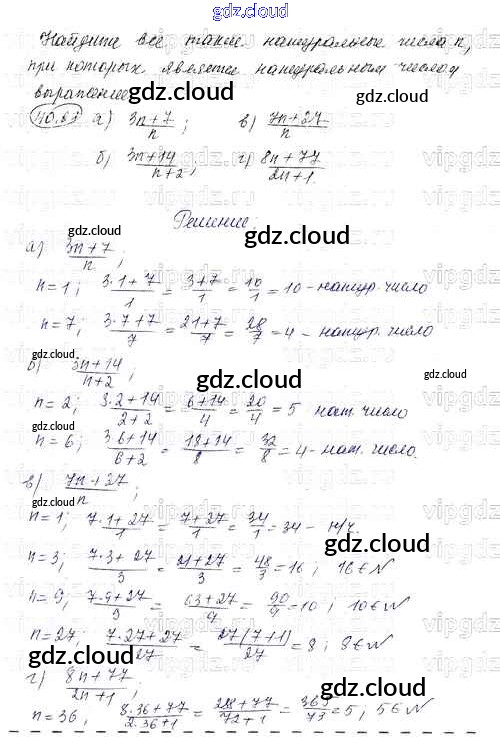 gdz.cloud
Найдите все такие натуральные числа n,
при которых является натуральным числом
выражение
gdz.cloud
40.63 а) (3n+7)/n ; в) (7n+27)/n
gdz.cloud
б) (3n+14)/(n+2), г) (8n+77)/(2n+1)
Решение:
gdz.cloud
а) (3n+7)/n ;
n=1; (3·1+7)/1 = (3+7)/1 = 10/1 = 10 - натур. число
gdz.cloud
n=7; (3·7+7)/7 = (21+7)/7 = 28/7 = 4 - натур. число
б) (3n+14)/(n+2) ;
gdz.cloud
gdz.cloud
n=2; (3·2+14)/(2+2) = (6+14)/4 = 20/4 = 5 нат. число
n=6; (3·6+14)/(6+2) = (18+14)/8 = 32/8 = 4 - нат. число.
в) (7n+27)/n ;
gdz.cloud
n=1; (7·1+27)/1 = (7+27)/1 = 34/1 = 34 - н/ч.
gdz.cloud
n=3; (7·3+27)/3 = (21+27)/3 = 48/3 = 16 ; 16∈N
gdz.cloud
n=9; (7·9+27)/9 = (63+27)/9 = 90/9 = 10 ; 10∈N
n=27; (7·27+27)/27 = 27(7+1)/27 = 8 ; 8∈N
gdz.cloud
г) (8n+77)/(2n+1) ;
gdz.cloud
n=36, (8·36+77)/(2·36+1) = (288+77)/(72+1) = 365/73 = 5 ; 5∈N
gdz.cloud